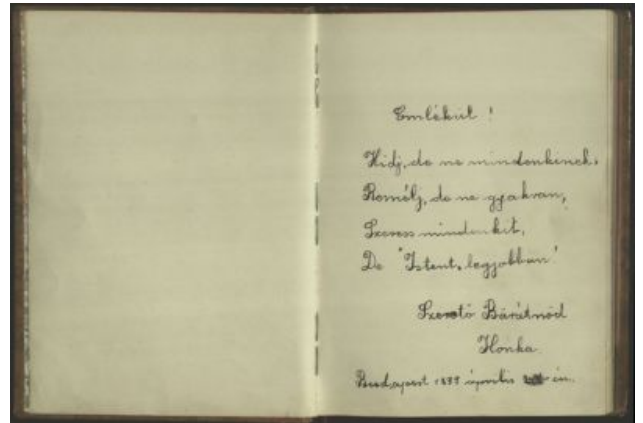 Emlékül !
Hidj, de ne mindenkinek,
Remélj, de ne gyakran,
Szeress mindenkit,
De Istent legjobban!
Szerető Barátnőd
Ilonka
Budapest április én.